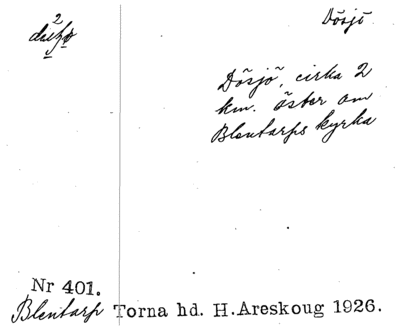 Dösjö
Dösjö, cirka 2
km. öster om
Blentarps kyrka
Nr 401.
Blentarp Torna hd. H.Areskoug 1926.